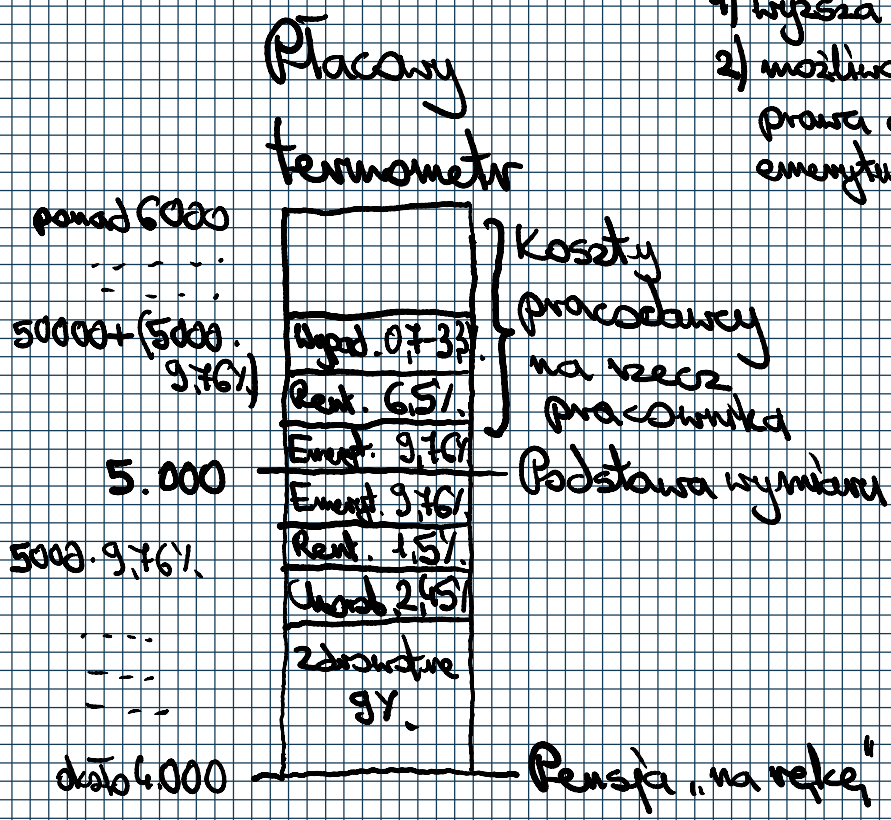 1) wyższa
2) możliwo
prawa
emerytu
Płacowy
termometr
ponad 6000
50000+(5000.
9,76%)
5.000
5000.9,76%
około 4.000
Wypad. 0,7-3,3%
Rent. 6,5%
Emeryt. 9,76%
Emeryt. 9,76%
Rent. 1,5%
Chorob. 2,45%
Zdrowotne
9%
Koszty
pracodawcy
na rzecz
pracownika
Podstawa wymiaru
Pensja „na rękę"